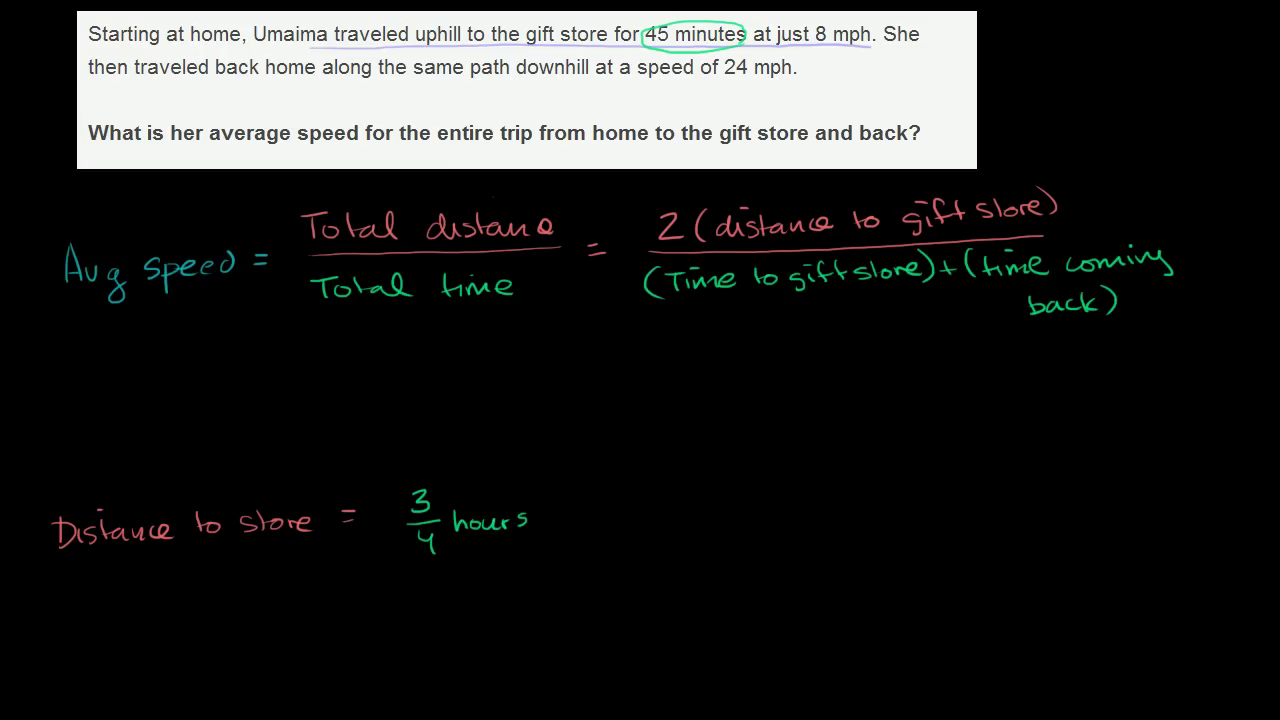 Starting at home, Umaima traveled uphill to the gift store for 45 minutes at just 8 mph. She
then traveled back home along the same path downhill at a speed of 24 mph.
What is her average speed for the entire trip from home to the gift store and back?
Avg speed = Total distance / Total time = 2 (distance to gift store) / (Time to gift store) + (time coming back)
Distance to store = 3/4 hours